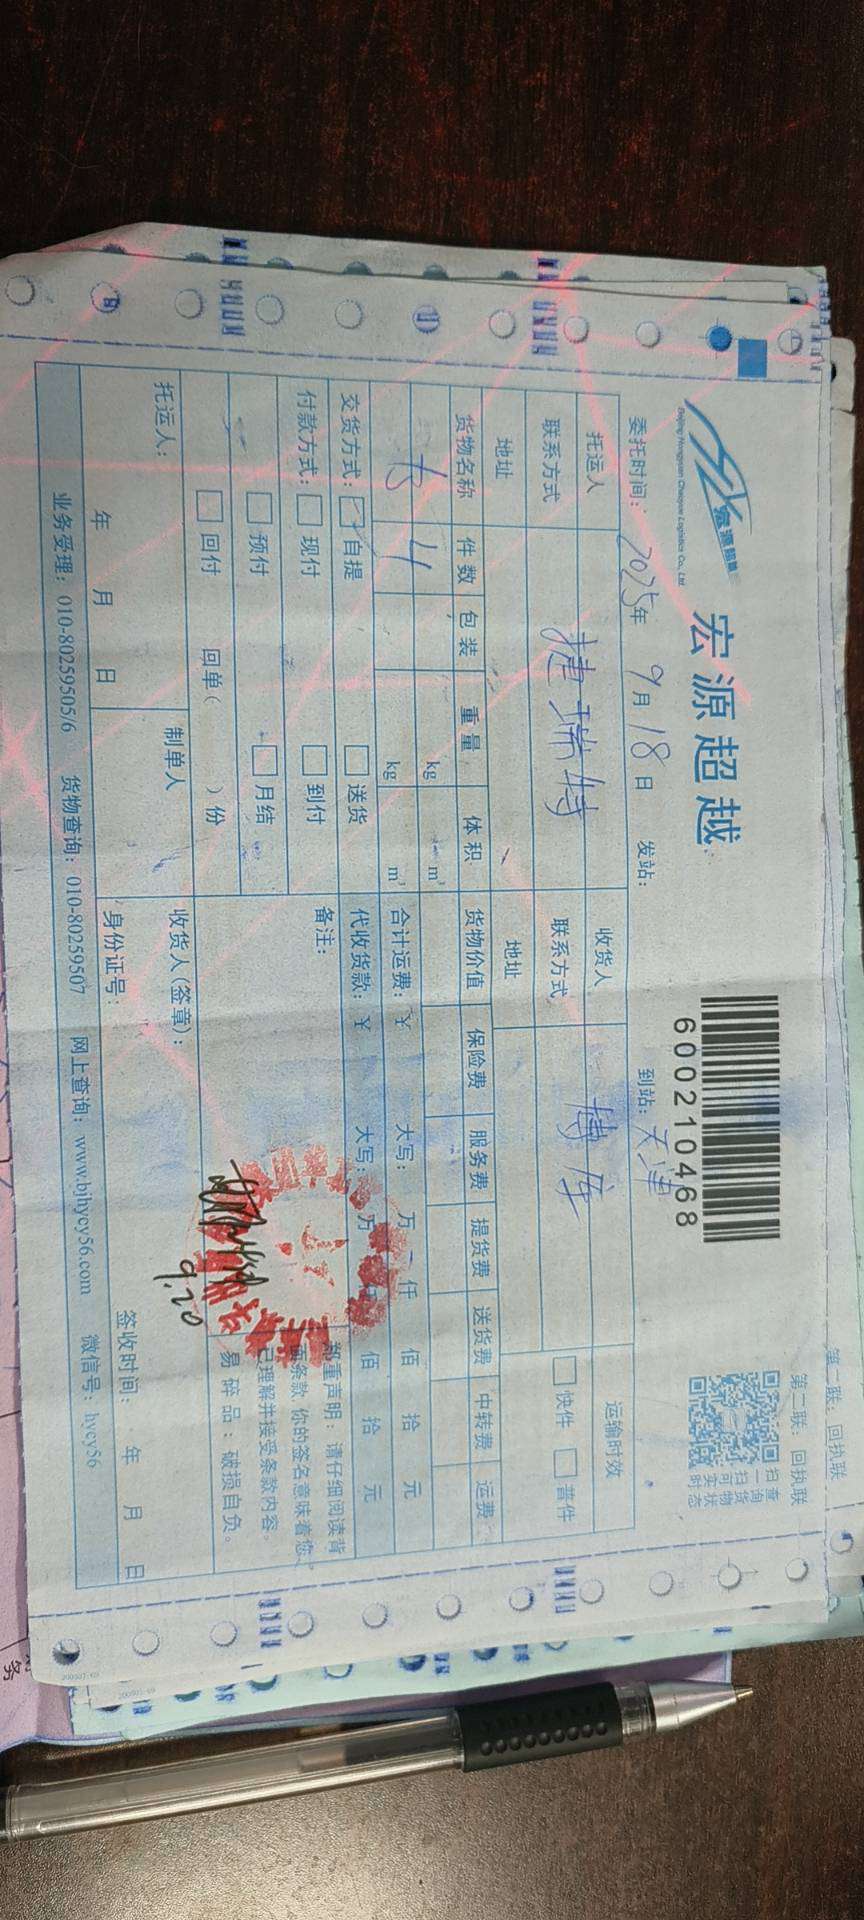 宏源超越
Beijing Hongyuan Chaoyue Logistics Co., Ltd
宏源超越
600210468
扫一扫可实时
查询货物状态
第二联：回执联
第二联：回执联
委托时间：2025年 9月18日 发站： 到站：天津
托运人 捷瑞特 收货人 博库 运输时效
联系方式 联系方式 快件 普件
地址 地址
货物名称 件数 包装 重量 体积 货物价值 保险费 服务费 提货费 送货费 中转费 运费
4 kg m³
kg m³ 合计运费：￥ 大写： 万 仟 佰 拾 元
交货方式： 自提 送货 代收货款：￥ 大写： 万 佰 拾 元
付款方式： 现付 到付 备注：
预付 月结
回付 回单（ ）份
郑重声明：请仔细阅读背
面条款 你的签名意味着您
已理解并接受条款内容。
易碎品：破损自负。
9.20
托运人： 制单人 收货人（签章）：
年 月 日 身份证号： 签收时间： 年 月 日
业务受理：010-80259505/6 货物查询：010-80259507 网上查询：www.bjhycy56.com 微信号：hycy56
务